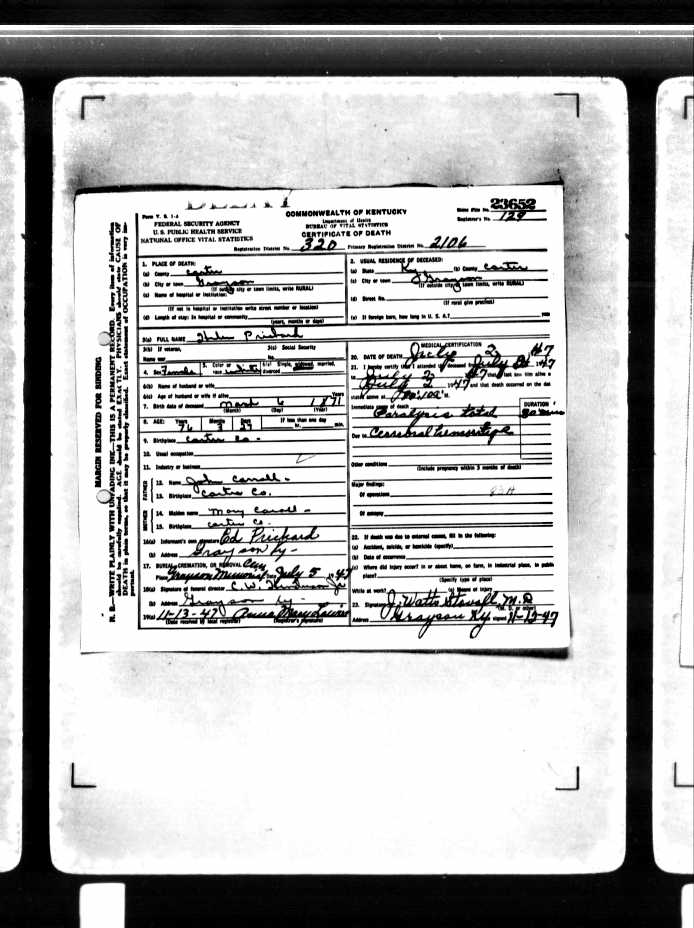 Form V. S. 1-A
COMMONWEALTH OF KENTUCKY
State File No. 23652
FEDERAL SECURITY AGENCY
Department of Health
Registrar's No. 129
U. S. PUBLIC HEALTH SERVICE
BUREAU OF VITAL STATISTICS
NATIONAL OFFICE VITAL STATISTICS
CERTIFICATE OF DEATH
Registration District No. 320 Primary Registration District No. 2106
MARGIN RESERVED FOR BINDING
N. B.—WRITE PLAINLY WITH UNFADING INK—THIS IS A PERMANENT RECORD. Every item of information
should be carefully supplied. AGE should be stated EXACTLY. PHYSICIANS should state CAUSE OF
DEATH in plain terms, so that it may be properly classified. Exact statement of OCCUPATION is very im-
portant.
1. PLACE OF DEATH:
(a) County Carter
(b) City or town Grayson
(If outside city or town limits, write RURAL)
(c) Name of hospital or institution:
(If not in hospital or institution write street number or location)
(d) Length of stay: In hospital or community
(years, months or days)
2. USUAL RESIDENCE OF DECEASED:
(a) State Ky (b) County Carter
(c) City or town Grayson
(If outside city or town limits, write RURAL)
(d) Street No.
(If rural give precinct)
(e) If foreign born, how long in U. S. A.? min
3(a) FULL NAME Helen Prichard
3(b) If veteran, 3(c) Social Security
Name war No.
4. Sex Female 5. Color or race white 6(a) Single, widowed, married, divorced
6(b) Name of husband or wife
6(c) Age of husband or wife if alive Years
7. Birth date of deceased March 6 1871
(Month) (Day) (Year)
8. AGE: Years Months Days If less than one day
76 3 27 hr. min.
9. Birthplace Carter Co.
10. Usual occupation
11. Industry or business
FATHER
12. Name John Carroll
13. Birthplace Carter Co.
MOTHER
14. Maiden name Mary Carroll
15. Birthplace Carter Co.
16(a) Informant's own signature Ed Prichard
(b) Address Grayson Ky
17. BURIAL, CREMATION, OR REMOVAL
Place Grayson Memorial Date July 5 1947
18(a) Signature of funeral director C. W.
(b) Address Grayson Ky
19(a) 11-13-47
(Date received by local registrar) (Registrar's signature)
MEDICAL CERTIFICATION
20. DATE OF DEATH July 2 47
21. I hereby certify that I attended the deceased from July 1947
to July 2 47 that I last saw him alive
July 2 1947 and that death occurred on the date
stated above at M.
Immediate cause of death DURATION
Paralysis total
Due to Cerebral hemorrhage
Other conditions
(Include pregnancy within 3 months of death)
Major findings:
Of operations 83A
Of autopsy
22. If death was due to external causes, fill in the following:
(a) Accident, suicide, or homicide (specify)
(b) Date of occurrence
(c) Where did injury occur? in or about home, on farm, in industrial place, in public
place?
(Specify type of place)
While at work? (e) Means of injury
23. Signature J. Watts Stovall, M.D
(M. D. or other)
Address Grayson Ky signed 11-13-47